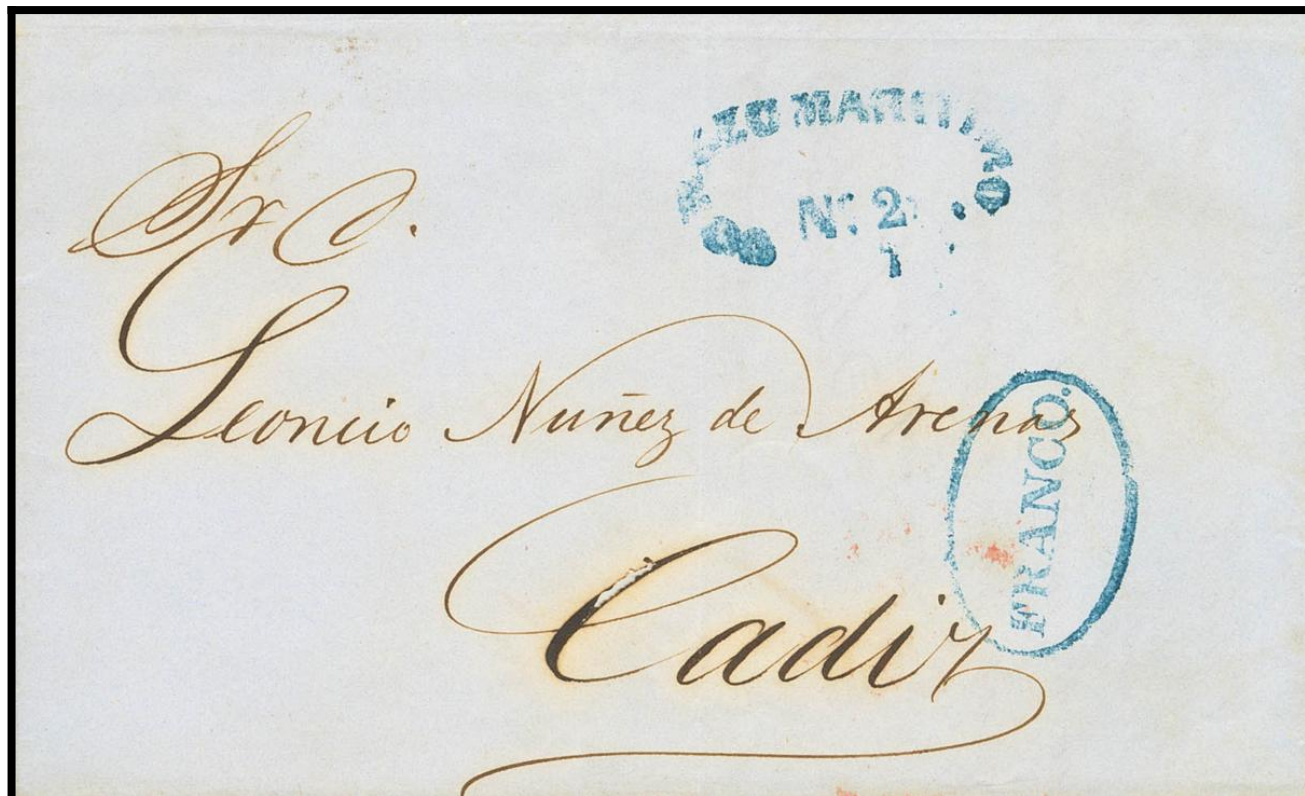 MARITIMO
Nº 2
Sr D.
Leoncio Nuñez de Arenas
FRANCO.
Cadiz